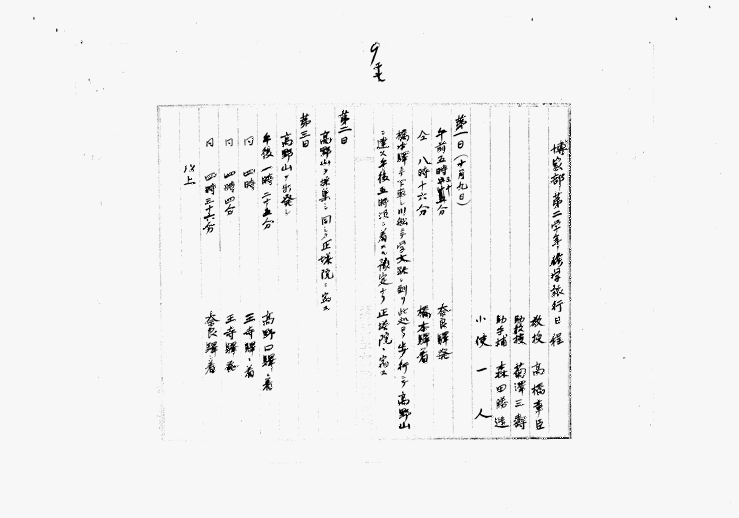 博家部第二学年修学旅行日程
教授 高橋章臣
助教授 菊澤三壽
助手補 森田
小使 一人
第一日(十月九日)
午前五時 分 奈良驛発
仝 八時十六分 橋本驛着
橋本驛ニ下車シ川船ニテ学文路ニ到リ此処ヨリ歩行シテ高野山
ニ達ス午後五時頃ニ着スル豫定ナリ 正塔院ニ宿ス
第二日
高野山ヲ採集シ同シク正塔院ニ宿ス
第三日
高野山ヲ出発シ
午後一時二十五分 高野口驛ニ着
同 四時 王寺驛ニ着
同 四時四分 王寺驛発
同 四時三十六分 奈良驛ニ着
以上